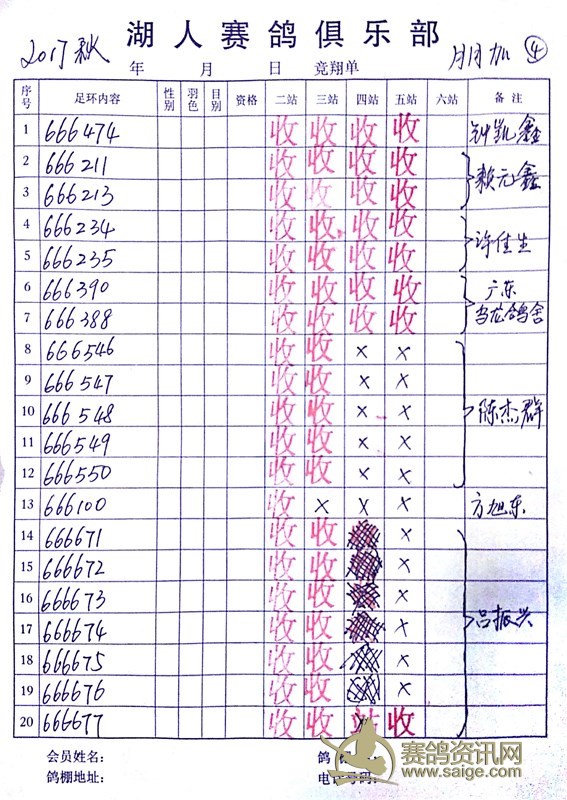 湖人赛鸽俱乐部
2017秋 年 月 日 竞翔单 ④
序号 足环内容 性别 羽色 目别 资格 二站 三站 四站 五站 六站 备注
1 666474 收 收 收 收 钟凯鑫
2 666211 收 收 收 收
赖元鑫
3 666213 收 收 收 收
4 666234 收 收 收 收
许佳生
5 666235 收 收 收 收
6 666390 收 收 收 收 广东
7 666388 收 收 收 收 乌龙鸽舍
8 666546 收 收 × ×
9 666547 收 收 × ×
10 666548 收 收 × × 陈杰群
11 666549 收 收 × ×
12 666550 收 收 × ×
13 666100 收 × × × 方旭东
14 666671 收 收 ×
15 666672 收 收 ×
16 666673 收 收 ×
17 666674 收 收 × 吕振兴
18 666675 收 收 ×
19 666676 收 收 ×
20 666677 收 收 收
会员姓名: 鸽
鸽棚地址: 电 号码:
赛鸽资讯网
www.saige.com